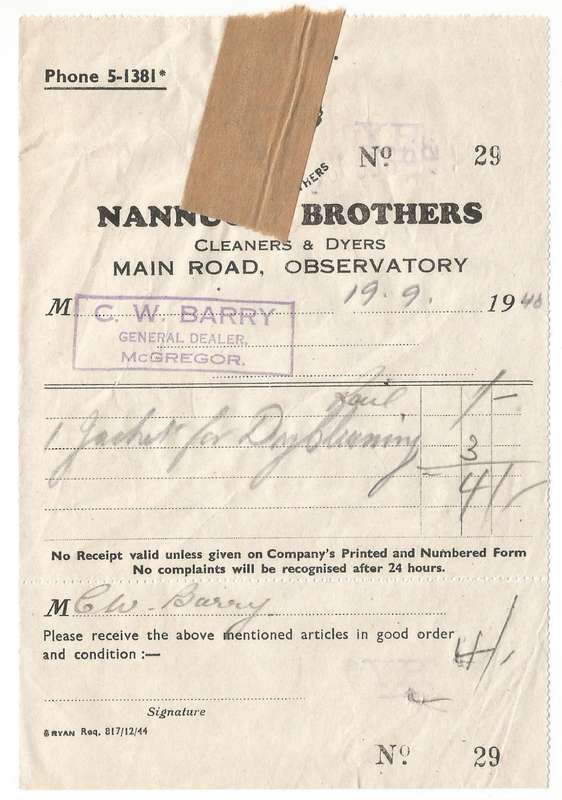 Phone 5-1381*
HERS
Nº 29
NANNU BROTHERS
CLEANERS & DYERS
MAIN ROAD, OBSERVATORY
19.9. 19
M C. W. BARRY
GENERAL DEALER,
McGREGOR.
1/-
1 Jacket for Dry Cleaning 3
4/
No Receipt valid unless given on Company's Printed and Numbered Form
No complaints will be recognised after 24 hours.
M C W. Barry
Please receive the above mentioned articles in good order
and condition :— 4/
Signature
BRYAN Req. 817/12/44
Nº 29